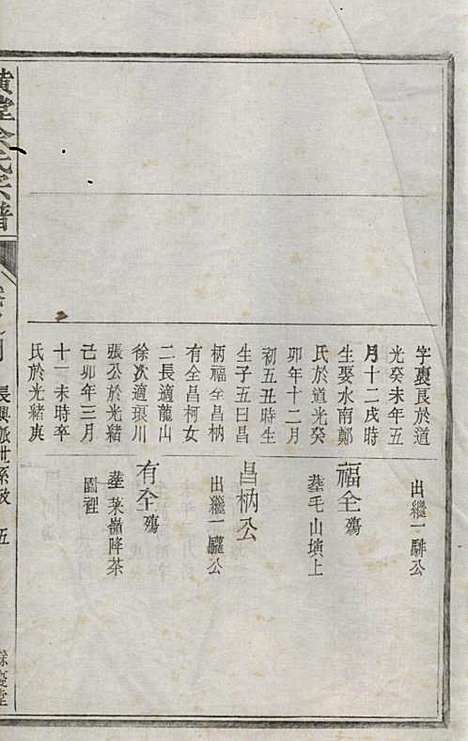 字裏良於道
光癸未年五
月十二戌時
生娶水南鄭
氏於道光癸
卯年十二月
初五丑時生
生子五曰昌
柄福全昌枘
有全昌柯女
二長適龍山
徐次適環川
張公於光緒
己卯年三月
十一未時卒
氏於光緒庚
出繼一騑公
福全殤
葬毛山墳上
昌枘公
出繼一驢公
有全殤
葬葉嶺降茶
園裡
黃堂余氏宗譜
五